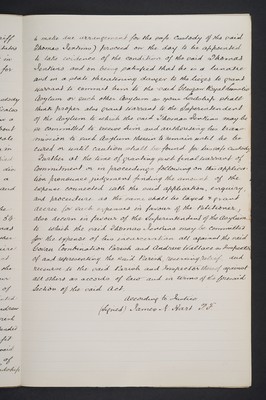 to make due arrangement for the safe custody of the said
Thomas Jenkins) proceed on the day to be appointed
to take evidence of the condition of the said Thomas
Jenkins and on being satisfied that he is a lunatic
and in a state threatening danger to the lieges to grant
warrant to commit him to the said Glasgow Royal Lunatic
Asylum or such other Asylum as your Lordship shall
think proper also grant warrant to the Superintendent
of the Asylum to which the said Thomas Jenkins may be
so committed to receive him and authorising his trans-
mission to such Asylum therein to remain until he be
cured or until caution shall be found for his safe custody
Further at the time of granting such final warrant of
Commitment or in proceedings following on this applica-
tion pronounce judgement finding the amount of the
expense connected with the said application, enquiry
and procedure as the same shall be taxed & grant
decree for such expenses in favour of the Petitioner,
also decern in favour of the Superintendent of the Asylum
to which the said Thomas Jenkins may be committed
for the expense of his maintenance all against the said
Govan Combination Parish and Andrew Wallace as Inspector
of and representing the said Parish, reserving relief and
recourse to the said Parish and Inspector thereof against
all others as accords of law and in terms of the foresaid
Section of the said Act.
According to Justice
(Signed) James N. Hart P.F.